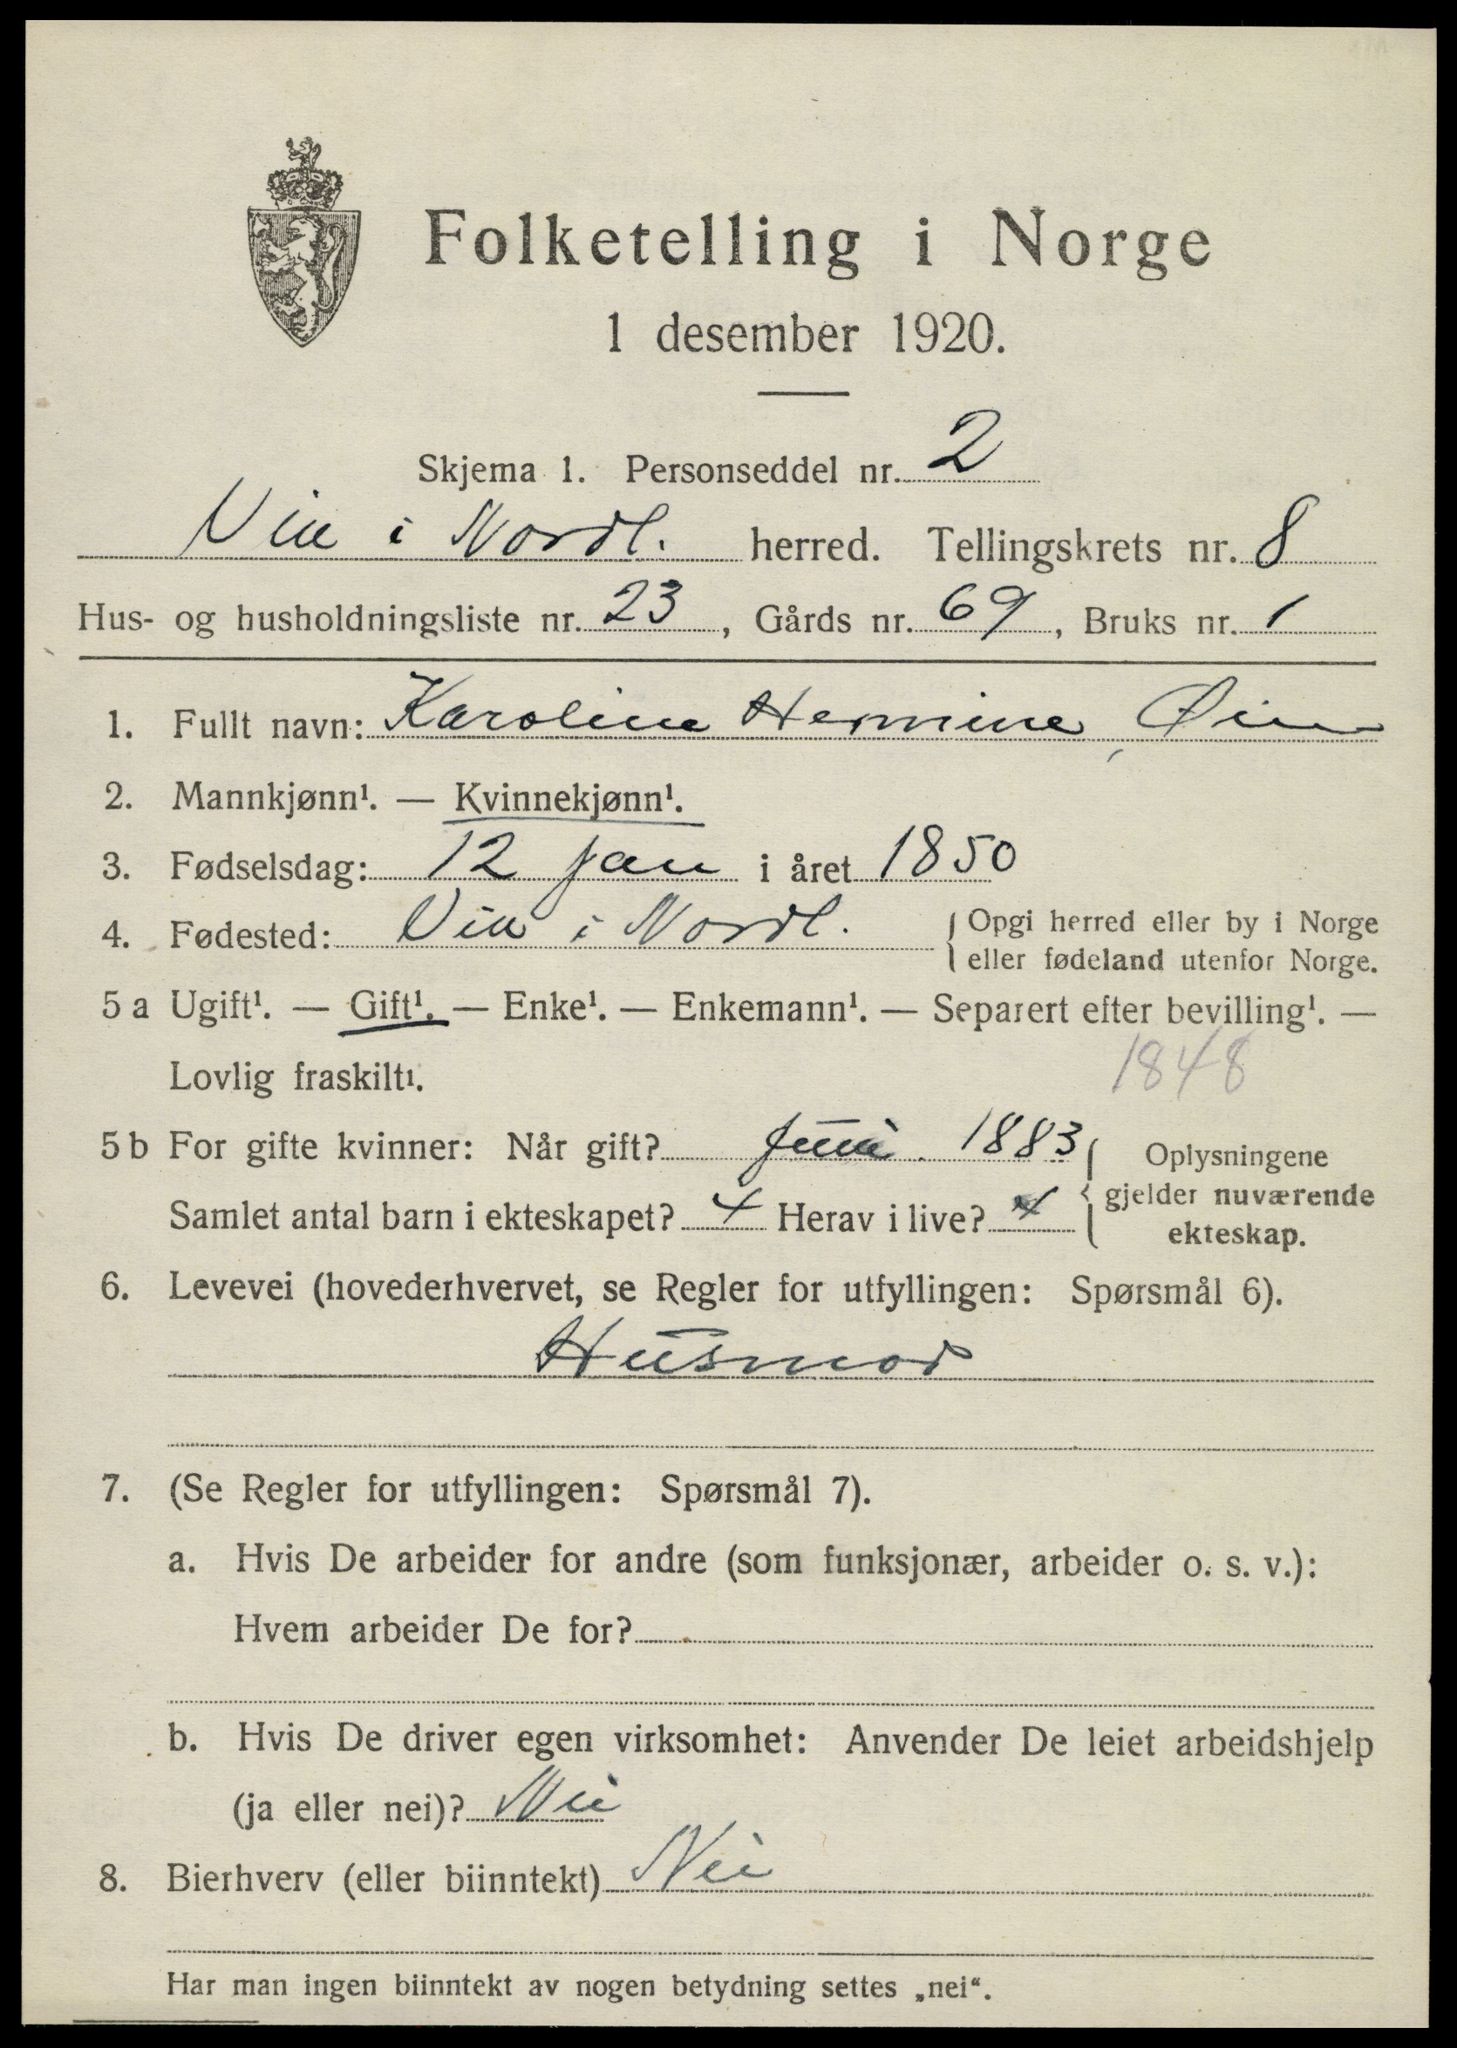 Folketelling i Norge
1 desember 1920.
Skjema 1. Personseddel nr. 2
Vik i Nordl. herred. Tellingskrets nr. 8
Hus- og husholdningsliste nr. 23, Gårds nr. 69, Bruks nr. 1
1. Fullt navn: Karoline Hermine Øien
2. Mannkjønn¹. — Kvinnekjønn¹.
3. Fødselsdag: 12 jan i året 1850
4. Fødested: Vik i Nordl. { Opgi herred eller by i Norge
eller fødeland utenfor Norge.
5 a Ugift¹. — Gift¹. — Enke¹. — Enkemann¹. — Separert efter bevilling¹. —
Lovlig fraskilt¹. 1848
5 b For gifte kvinner: Når gift? Juni 1883
Samlet antal barn i ekteskapet? 4 Herav i live? 4
{ Oplysningene
gjelder nuværende
ekteskap.
6. Levevei (hovederhvervet, se Regler for utfyllingen: Spørsmål 6).
Husmor
7. (Se Regler for utfyllingen: Spørsmål 7).
a. Hvis De arbeider for andre (som funksjonær, arbeider o. s. v.):
Hvem arbeider De for?
b. Hvis De driver egen virksomhet: Anvender De leiet arbeidshjelp
(ja eller nei)? Nei
8. Bierhverv (eller biinntekt) Nei
Har man ingen biinntekt av nogen betydning settes „nei“.